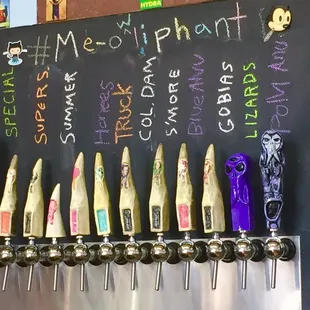 HYDRA
#Me-oliphant
SPECIAL
SUPERS
SUMMER
Horees
TRUCK
COL. DAM
S'MORE
Blue ANN
GOBIAS
LIZARDS